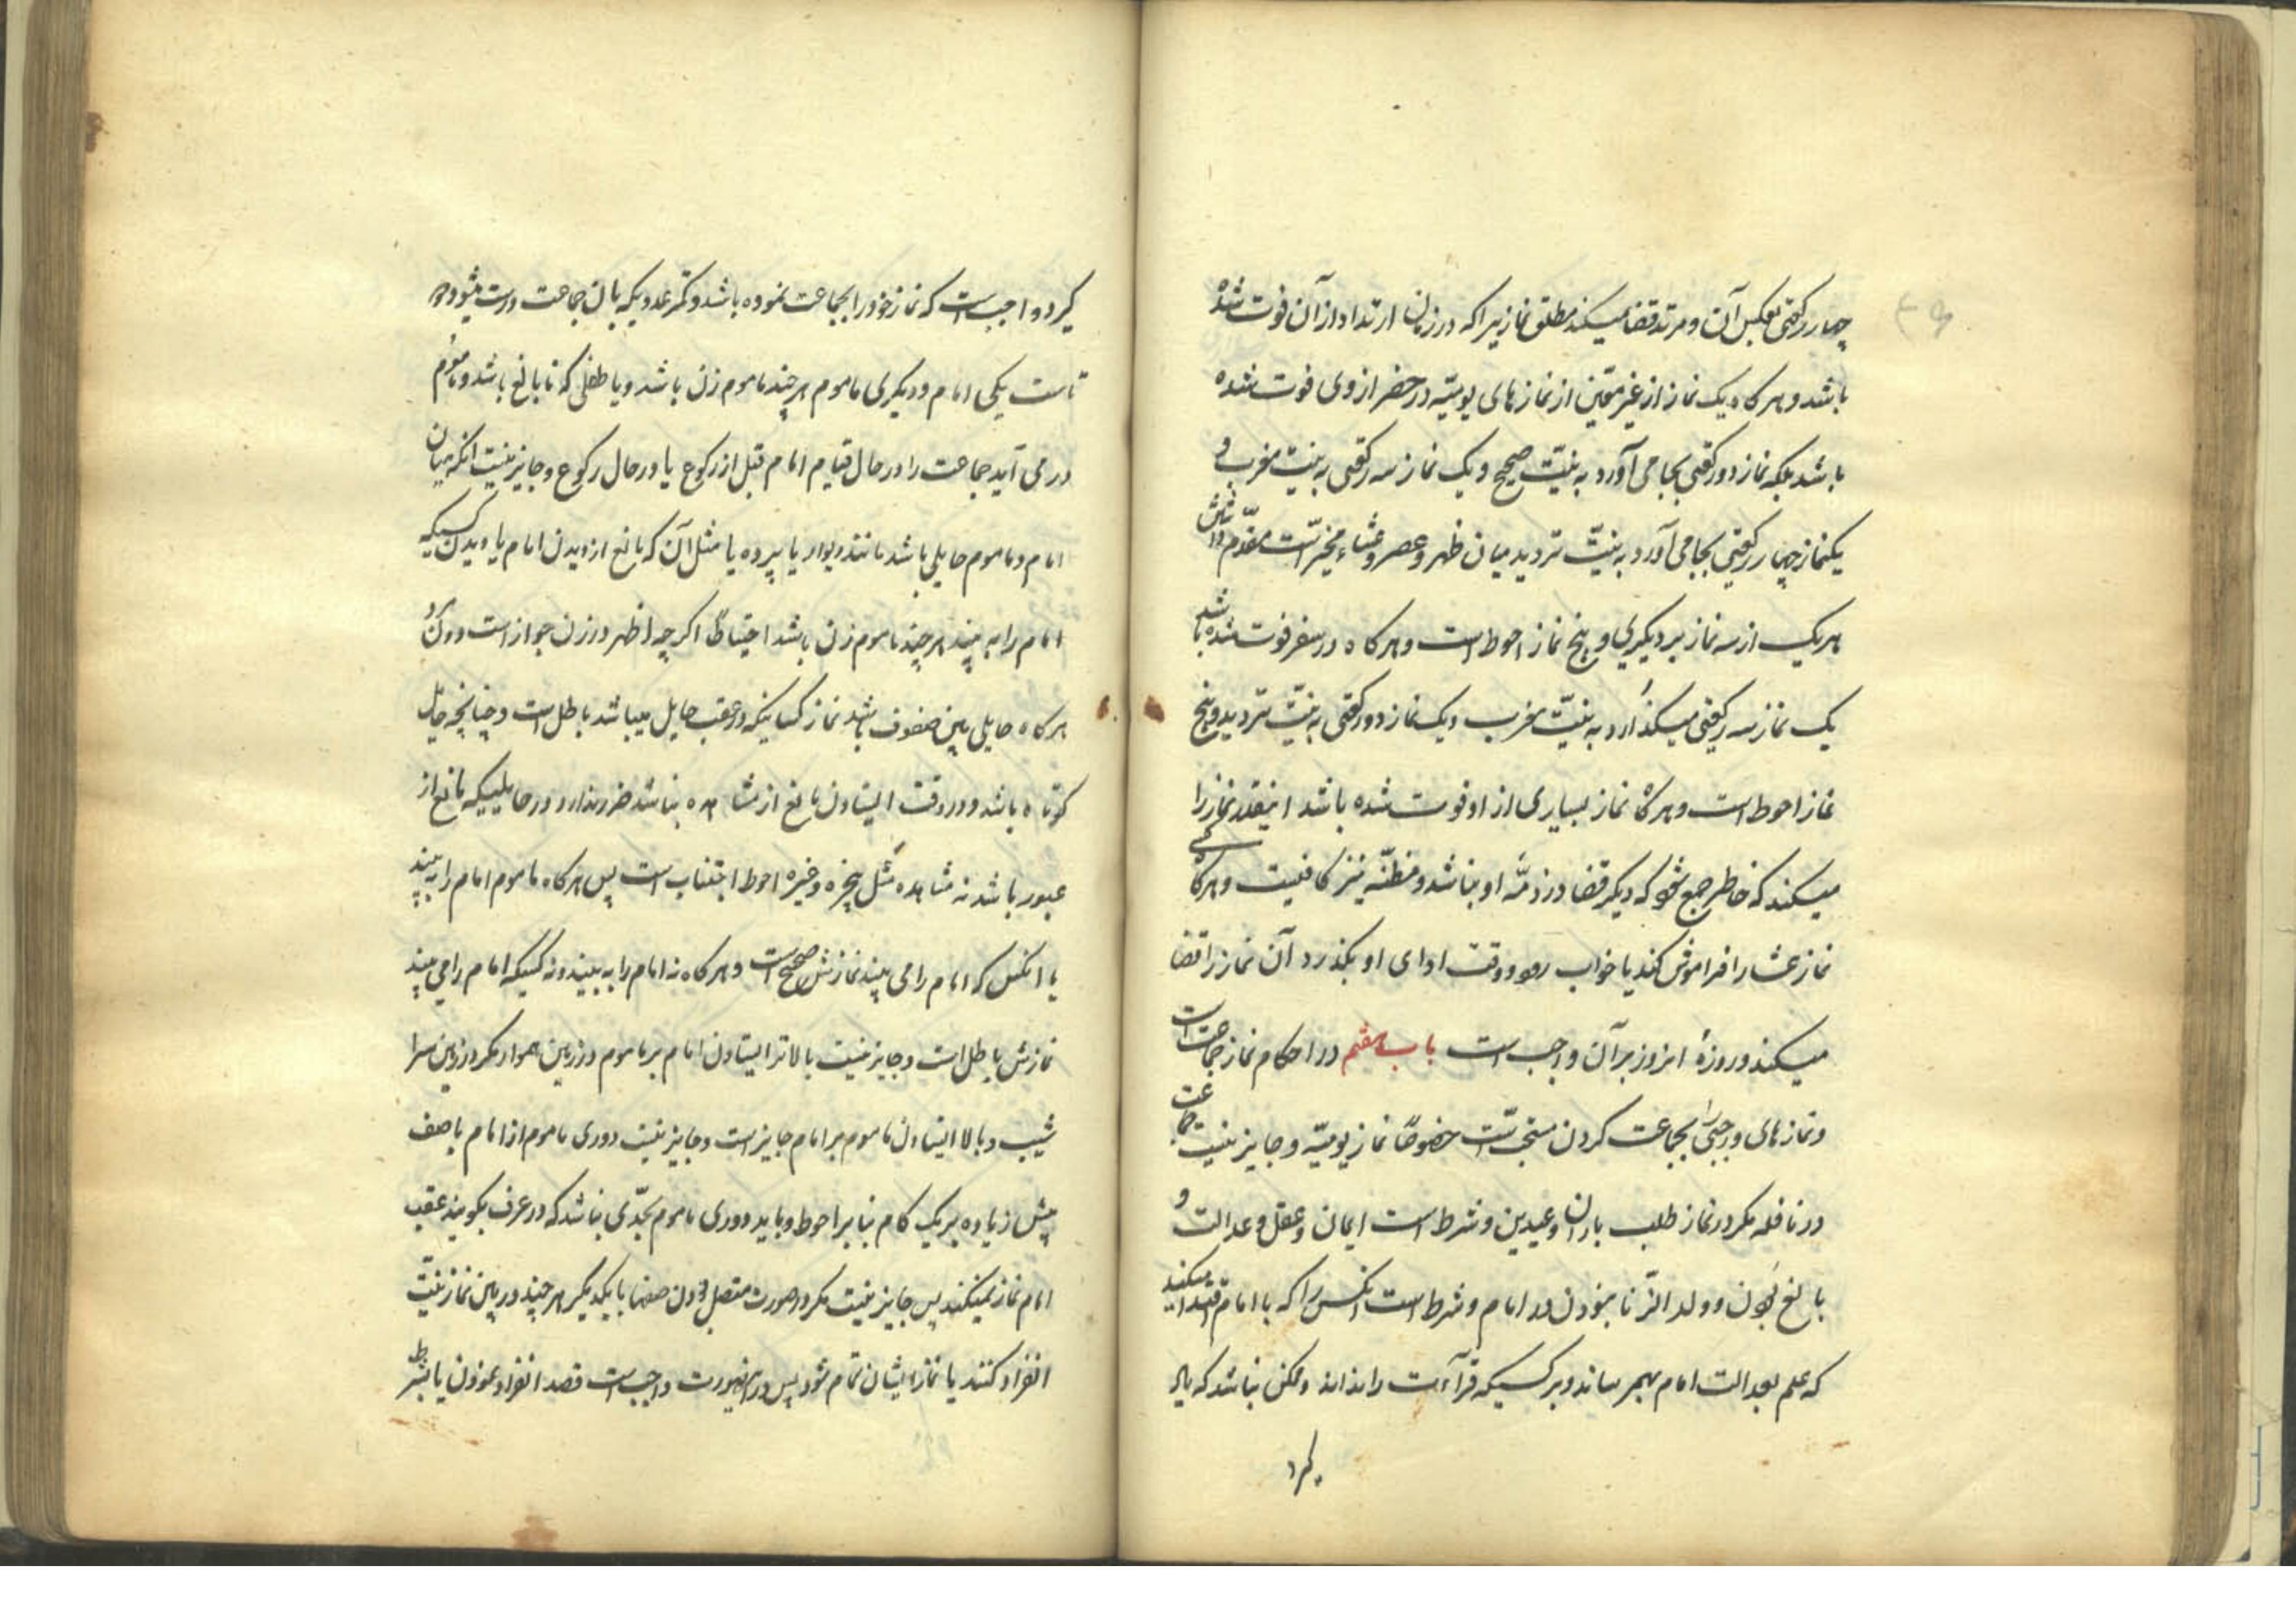 چهار رکعتی بعکس آن و مرتد قضا میکند مطلق نماز یرا که در زمان ارتداد از آن فوت شده
باشد و هر کاه یک نماز از غیر معین از نمازهای یومیّه در حضر از وی فوت شده
باشد بلکه نماز دو رکعتی بجا می آورد به نیّت صبح و یک نماز سه رکعتی به نیت مغرب و
یکنماز چهار رکعتی بجا می آورد به نیّت تردید میان ظهر و عصر و عشاء مخیّر است مقدّم داشتن
هر یک از سه نماز بر دیکری و پنج نماز احوط است و هر کاه در سفر فوت شده باشد
یک نماز سه رکعتی میکذارد به نیّت مغرب و یک نماز دو رکعتی به نیّت تردید و پنج
نماز احوط است و هر کاه نماز بسیاری از او فوت شده باشد اینقدر نماز را
میکند که خاطر جمع شود که دیکر قضا در ذمّه او نباشد و مظنّه نیز کافیست و هر کاه کسی
نماز عشا را فراموش کند یا خواب رود و وقت ادای او بکذرد آن نماز را قضا
میکند و روزهٔ انروز بر آن واجب است باب هفتم در احکام نماز جماعت است
و نمازهای واجبی را بجماعت کردن مستحبّ است خصوصًا نماز یومیّه و جایز نیست جماعت
در نافله مکر در نماز طلب باران و عیدین و شرط است ایمان و عقل و عدالت و
بالغ بودن و ولد الزّنا نبودن در امام و شرط است انکس را که با امام اقتدا میکند
که علم بعدالت امام بهم رساند و بر کسیکه قرآءت را نداند و ممکن نباشد که یاد
کیرد
کیرد واجب است که نماز خود را بجماعت نموده باشد و کمتر عددیکه بان جماعت درست میشود دو
تاست یکی امام و دیکری ماموم هر چند ماموم زن باشد و یا طفلی که نا بالغ باشد و ماموم
در می آید جماعت را در حال قیام امام قبل از رکوع یا در حال رکوع و جایز نیست انکه میان
امام و ماموم حایلی باشد مانند دیوار یا پرده یا مثل آن که مانع از دیدن امام یا دیدن کسیکه
امام را به بیند هر چند ماموم زن باشد احتیاطًا اکر چه اظهر در زن جواز است
هر کاه حایلی بین صفوف باشد نماز کسانیکه در عقب حایل میباشد باطل است و چنانچه حایل
کوتاه باشد و در وقت ایستادن مانع از مشاهده نباشد ضرر ندارد و در حایلیکه مانع از
عبور باشد نه مشاهده مثل پنجره و غیره احوط اجتناب است پس هر کاه ماموم امام را به بیند
یا انکس که امام را می بیند نمازش صحیح است و هر کاه نه امام را به بیند و نه کسیکه امام را می بیند
نمازش باطل است و جایز نیست بالاتر ایستادن امام بر ماموم در زمین هموار مکر در زمین سرا
شیب و بالا ایستادن ماموم بر امام جایز است و جایز نیست دوری ماموم از امام یا صف
پیش زیاده بر یک کام بنا بر احوط و باید دوری ماموم بحدّی نباشد که در عرف بکویند عقب
امام نماز نمیکند پس جایز نیست مکر در صورت متصل بودن صفها با یکدیکر هر چند در بین نماز نیّت
انفراد کنند یا نماز ایشان تمام شود پس در اینصورت واجب است قصد انفراد نمودن یا بشرط